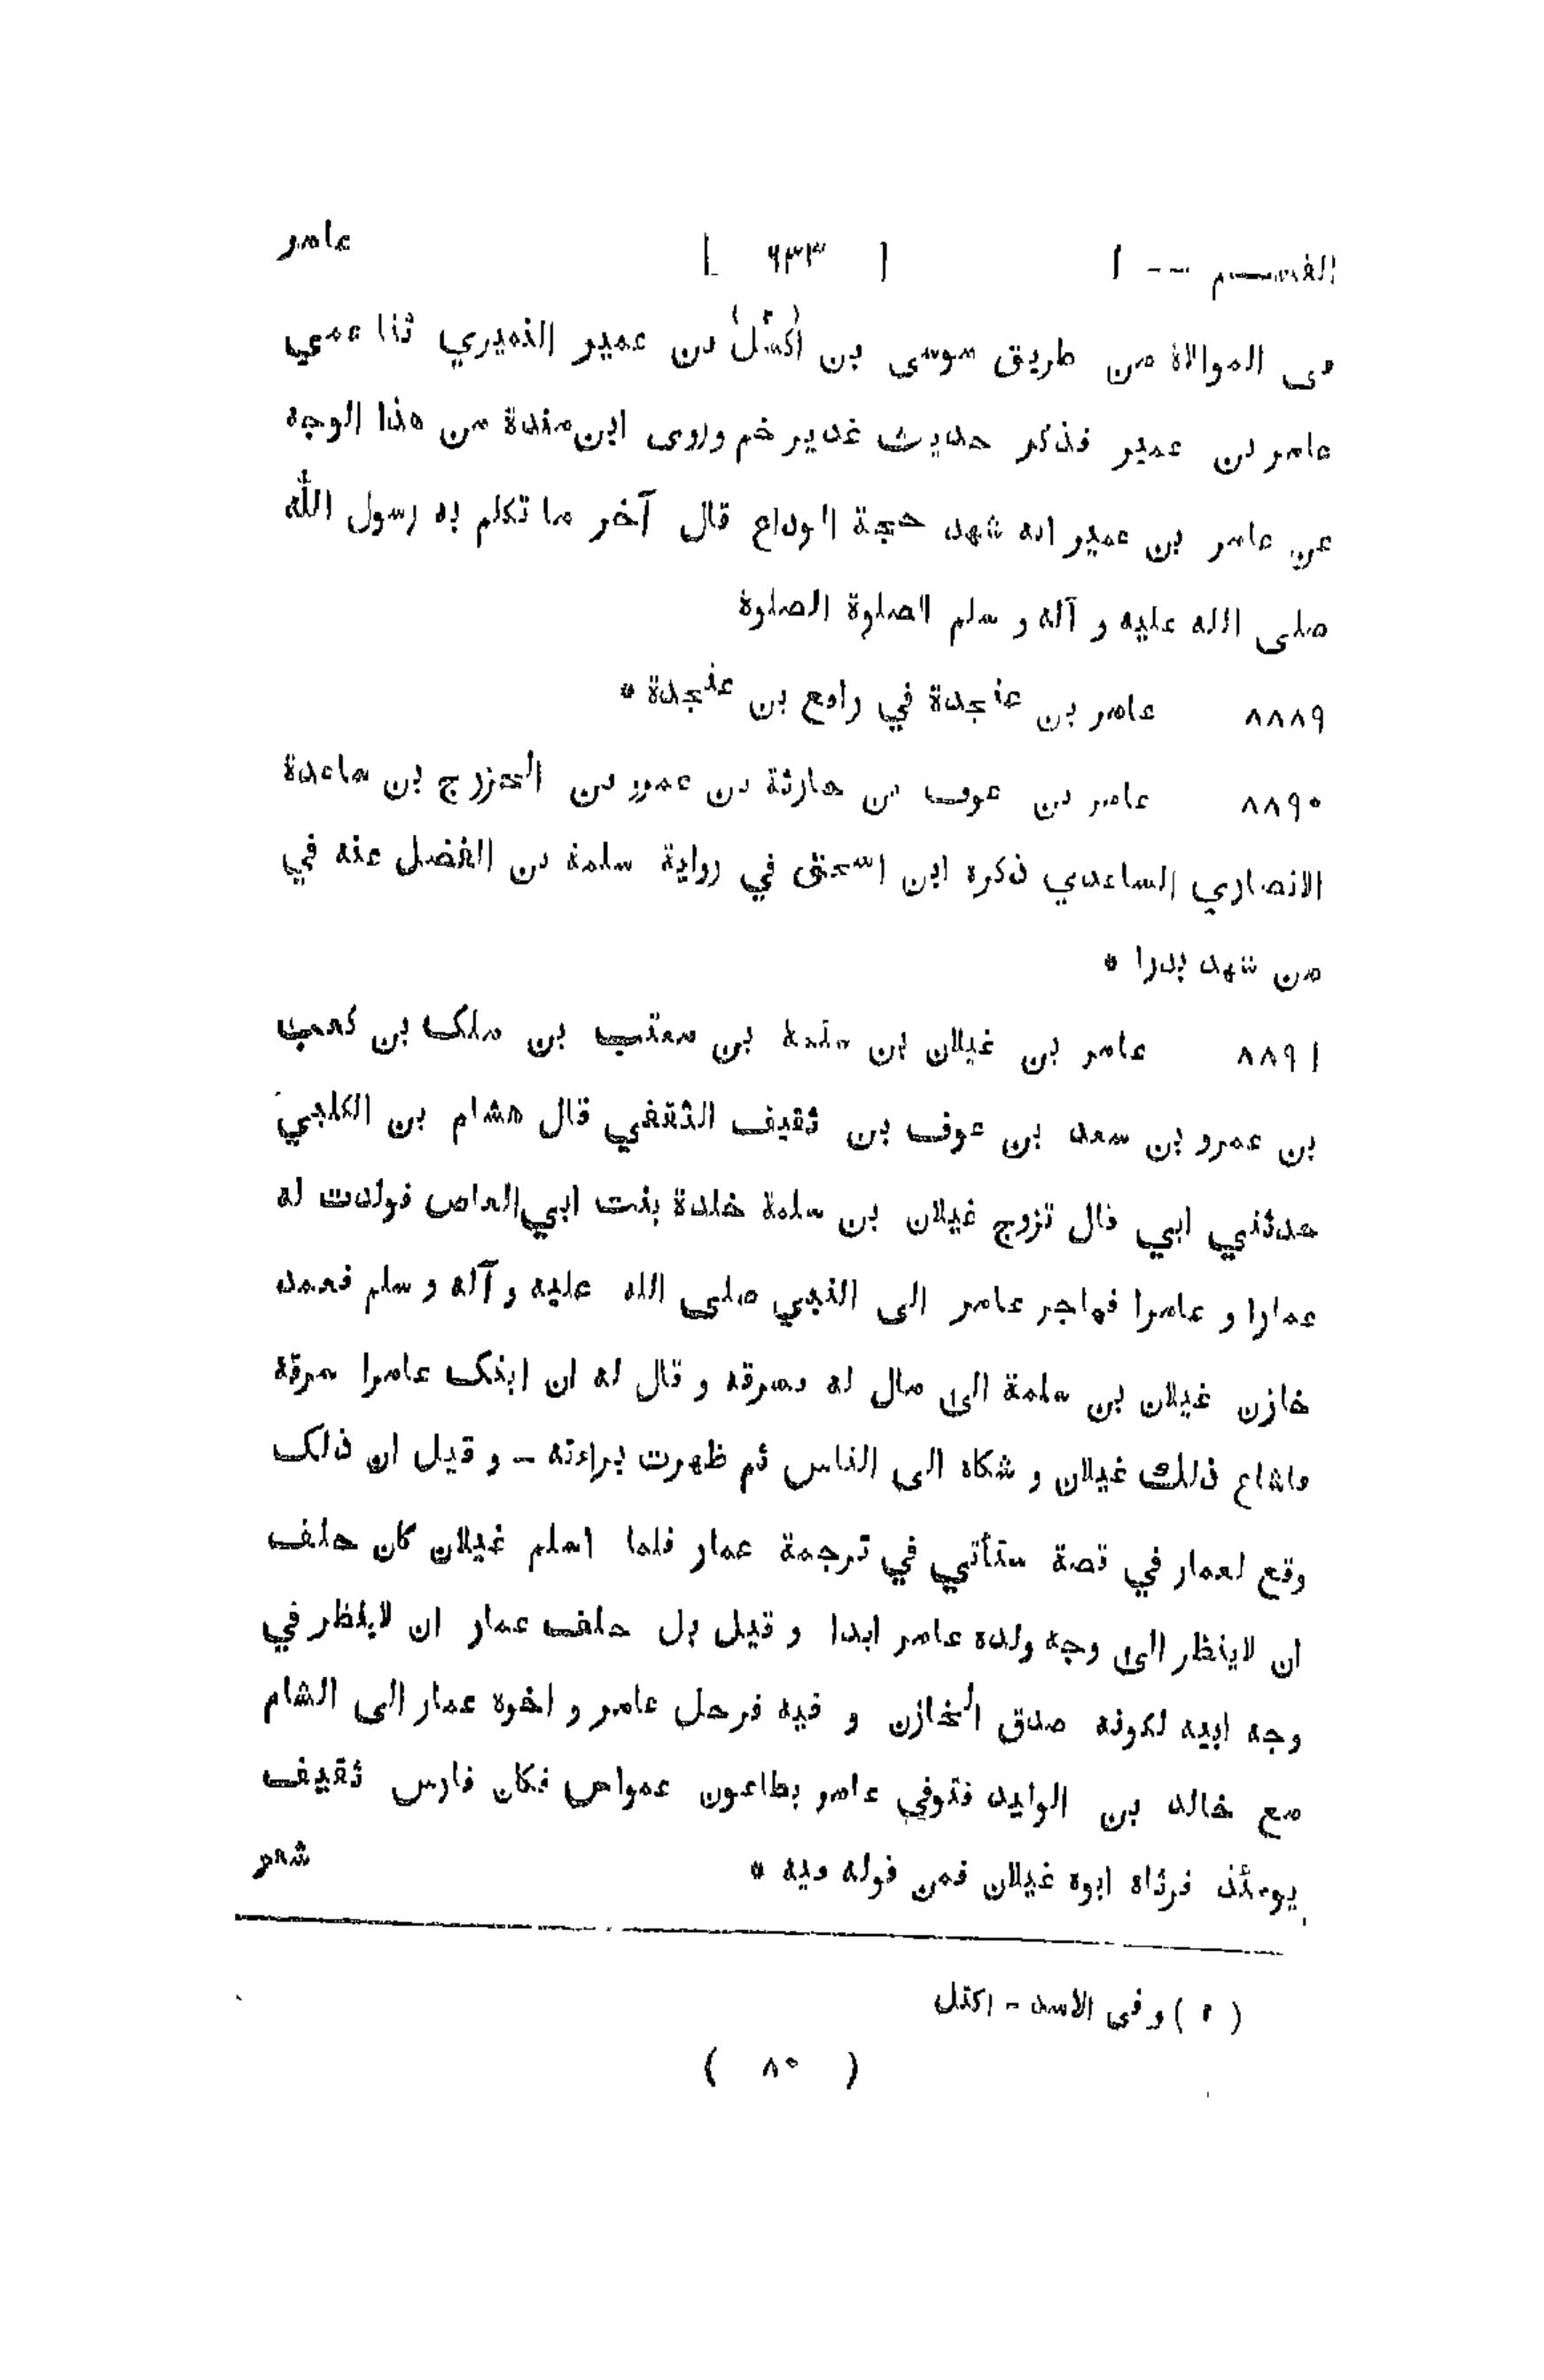 القسم -- ١ [ ٦٣٣ ] عامر
فى الموالاة من طريق موسى بن اكتل (٢) بن عمير النميري ثنا عمي
عامر بن عمير فذكر حديث غدير خم وروى ابن مندة من هذا الوجه
عن عامر بن عمير انه شهد حجة الوداع قال آخر ما تكلم به رسول الله
صلى الله عليه و آله و سلم الصلوة الصلوة
٨٨٨٩ عامر بن عنجدة في رافع بن عنجدة *
٨٨٩٠ عامر بن عوف بن حارثة بن عمرو بن الخزرج بن ساعدة
الانصاري الساعدي ذكره ابن اسحق في رواية سلمة بن الفضل عنه في
من شهد بدرا *
٨٨٩١ عامر بن غيلان بن سلمة بن معتب بن ملك بن كعب
بن عمرو بن سعد بن عوف بن ثقيف الثقفي قال هشام بن الكلبي
حدثني ابي قال تزوج غيلان بن سلمة خلدة بنت ابي العاص فولدت له
عمارا و عامرا فهاجر عامر الى النبي صلى الله عليه و آله و سلم فعمد
خازن غيلان بن سلمة الى مال له فسرقه و قال له ان ابنك عامرا سرقه
فاشاع ذلك غيلان و شكاه الى الناس ثم ظهرت براءته - و قيل ان ذلك
وقع لعمار في قصة ستأتي في ترجمة عمار فلما اسلم غيلان كان حلف
ان لاينظر الى وجه ولده عامر ابدا و قيل بل حلف عمار ان لاينظر في
وجه ابيه لكونه صدق الخازن و فيه فرحل عامر و اخوه عمار الى الشام
مع خالد بن الوليد فتوفي عامر بطاعون عمواس فكان فارس ثقيف
يومئذ فرثاه ابوه غيلان فمن قوله فيه * شعر
( ٢ ) و فى الاسد - اكتل
( ٨٠ )